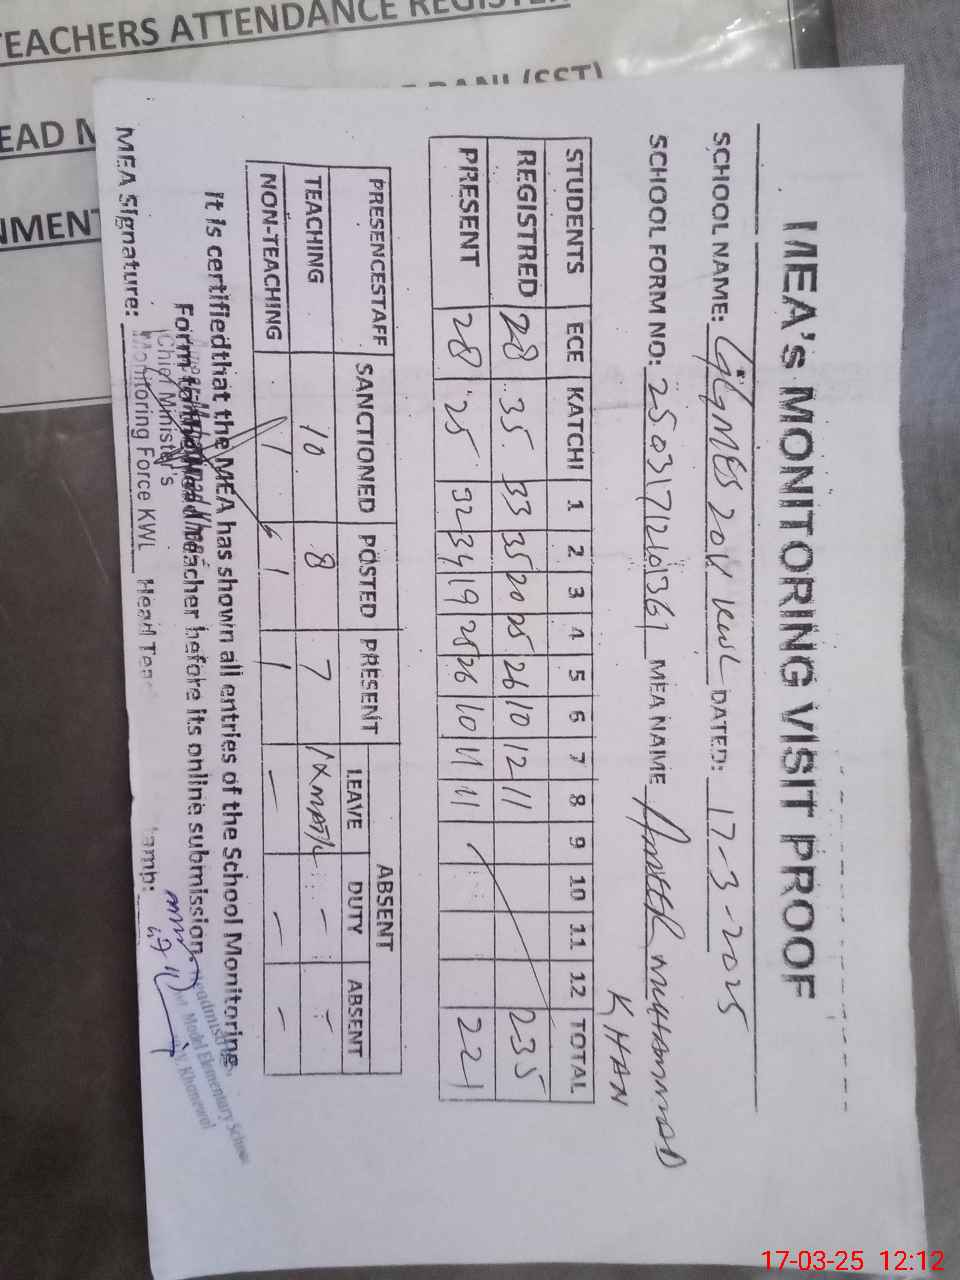 TEACHERS ATTENDANCE REGISTER
(SST)
EAD M
NMENT
MEA's MONITORING VISIT PROOF
SCHOOL NAME: GGMES 20V KWL DATED: 17-3-2025
SCHOOL FORM NO: MEA NAME MUHAMMAD
KHAN
STUDENTS ECE KATCHI 1 2 3 4 5 6 7 8 9 10 11 12 TOTAL
REGISTRED 28 35 33 35 20 25 26 10 12 11 235
PRESENT 28 25 32 34 19 25 26 10 11 11 221
PRESENCESTAFF SANCTIONED POSTED PRESENT ABSENT
LEAVE DUTY ABSENT
TEACHING 10 8 7 -- -
NON-TEACHING 1 1 1 - - -
It is certifiedthat the MEA has shown all entries of the School Monitoring
Form to the Head Teacher before its online submission.
MEA Signature: Head Teac amp:
Chief Minister's
Monitoring Force KWL
Model Elementary School
Khanewal
17-03-25 12:12